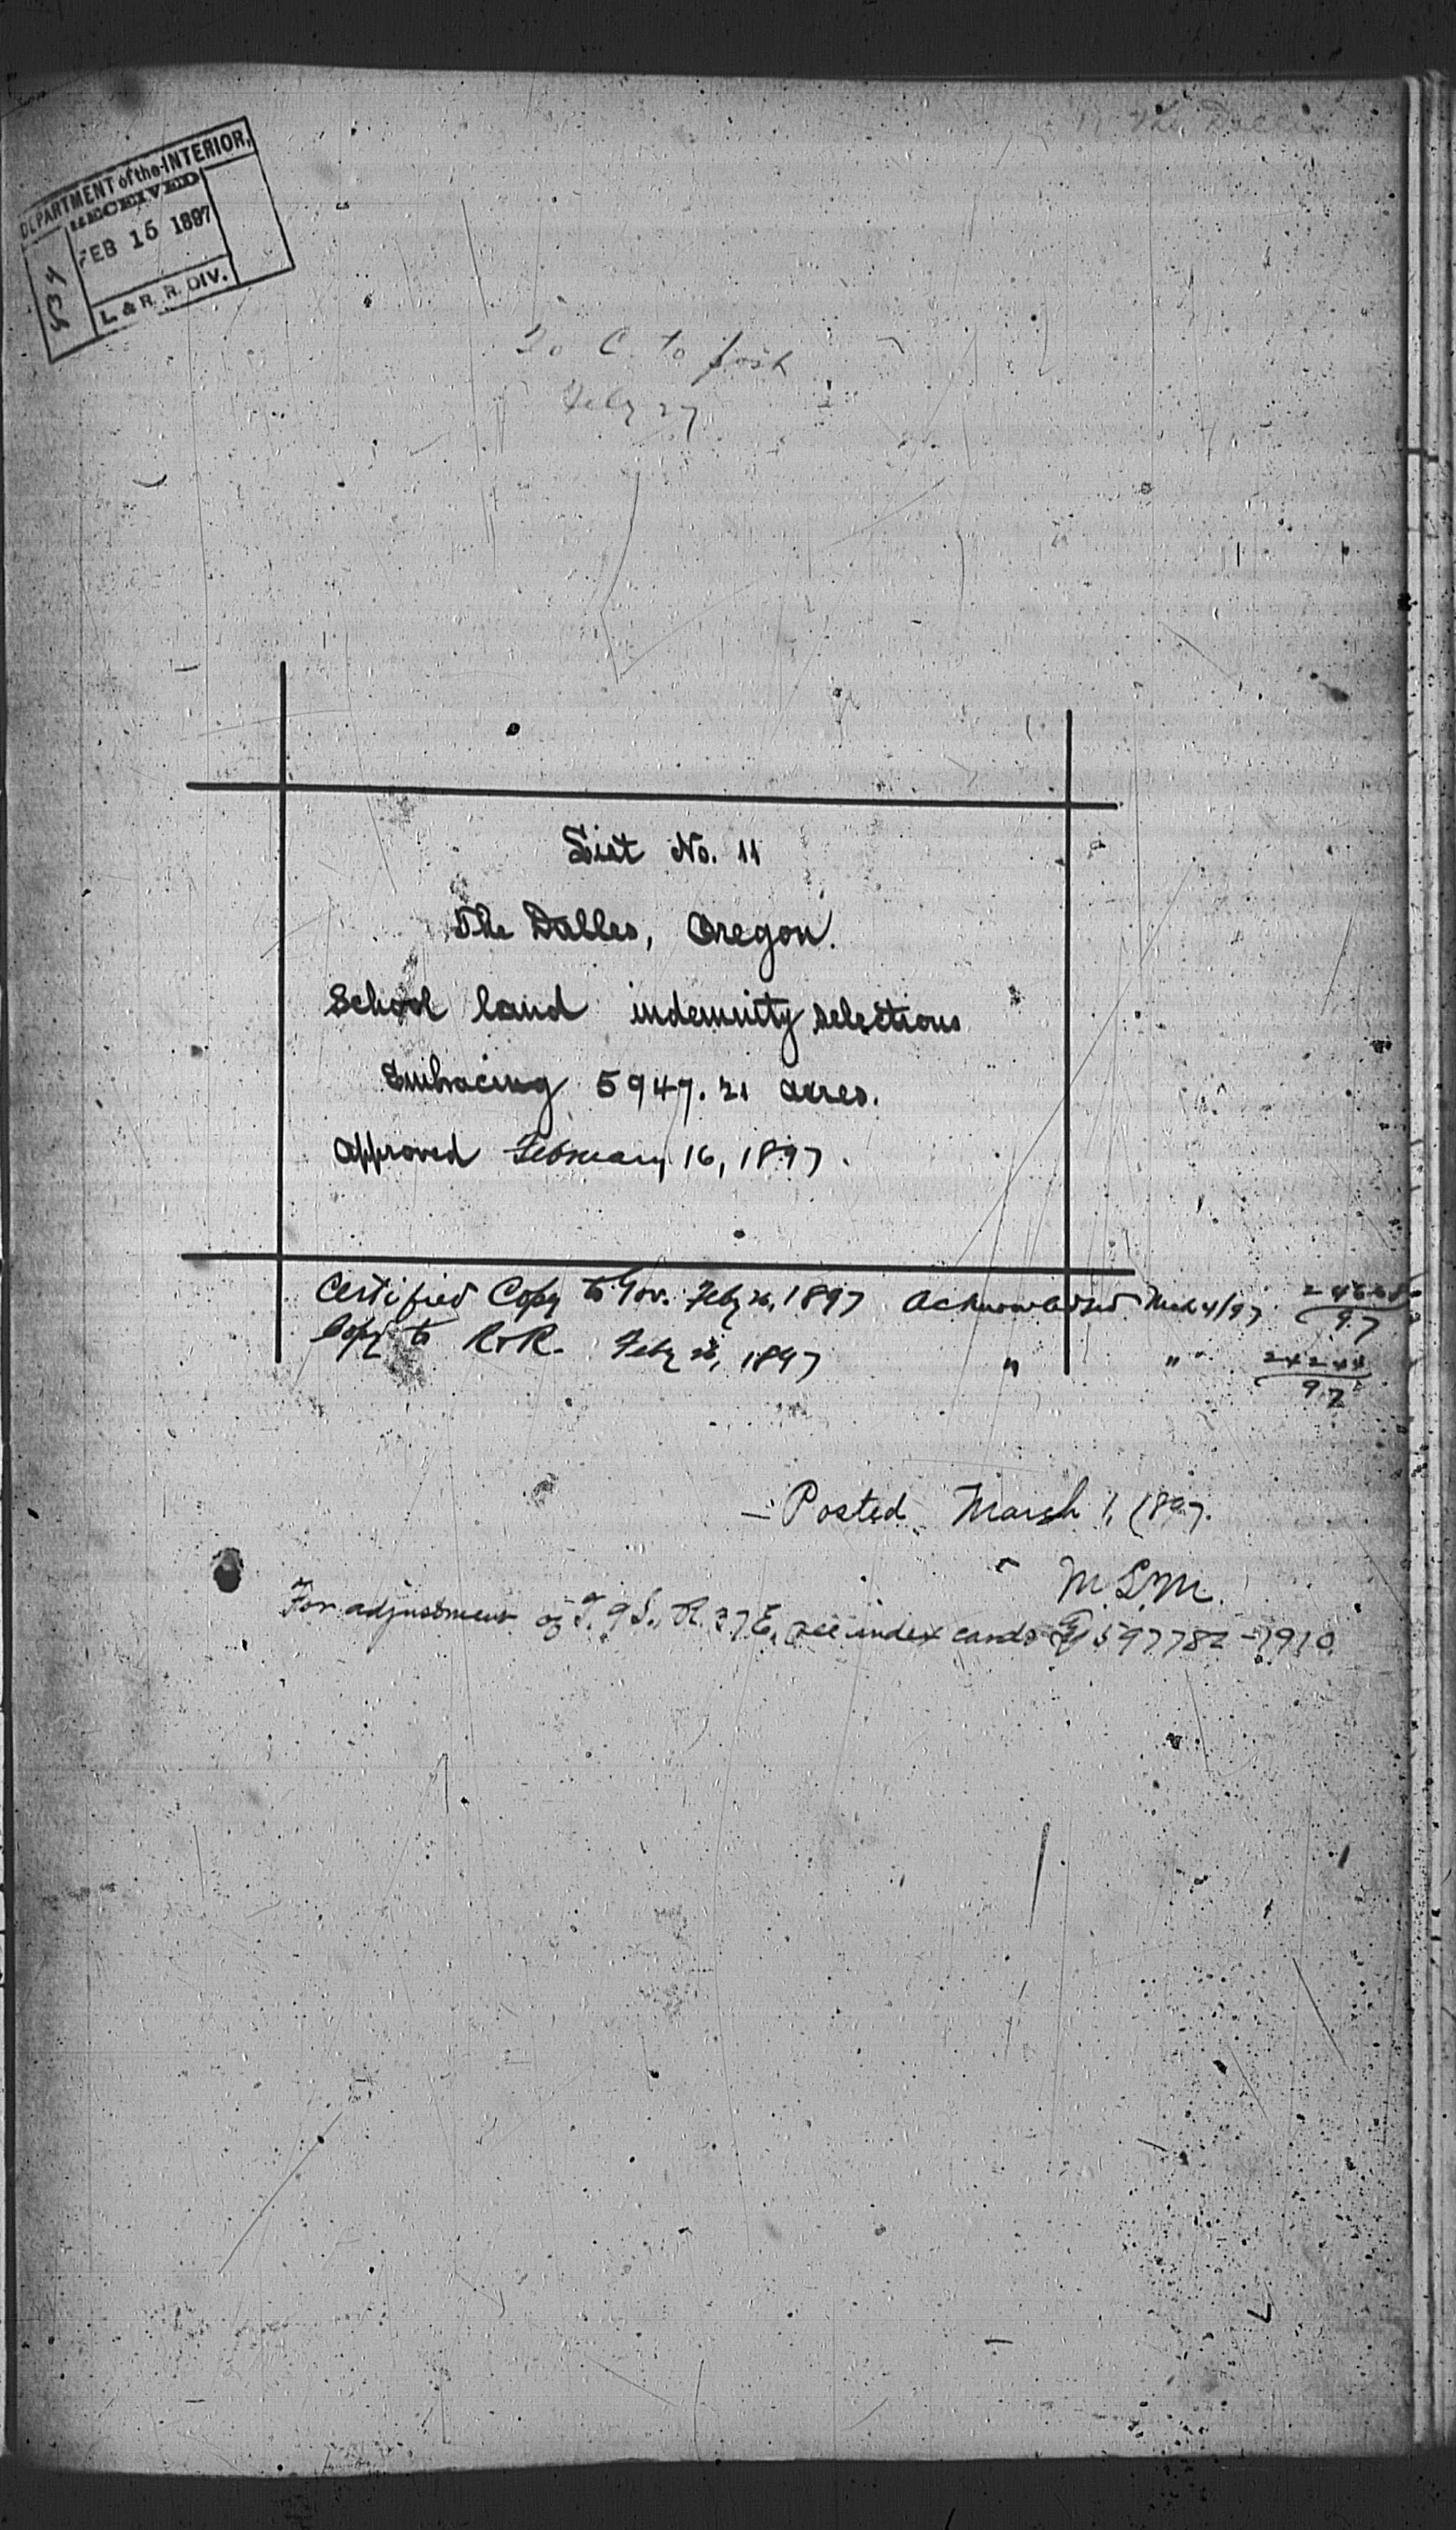 The Dalles
DEPARTMENT of the INTERIOR,
RECEIVED
FEB 15 1897
L & R. R. DIV.
534
to
Feby 27
List No. 11
The Dalles, Oregon.
School land indemnity selections
Embracing 5947.21 acres.
Approved February 16, 1897.
Certified Copy to Gov. Feby 26, 1897 Acknowledged Mch 4/97
97
Copy to R & R. Feby 26, 1897 " " 24244
97
Posted March 1, 1897.
M.L.M.
For adjustment of T. 9 S., R. 37 E., see index cards 597782-1910.